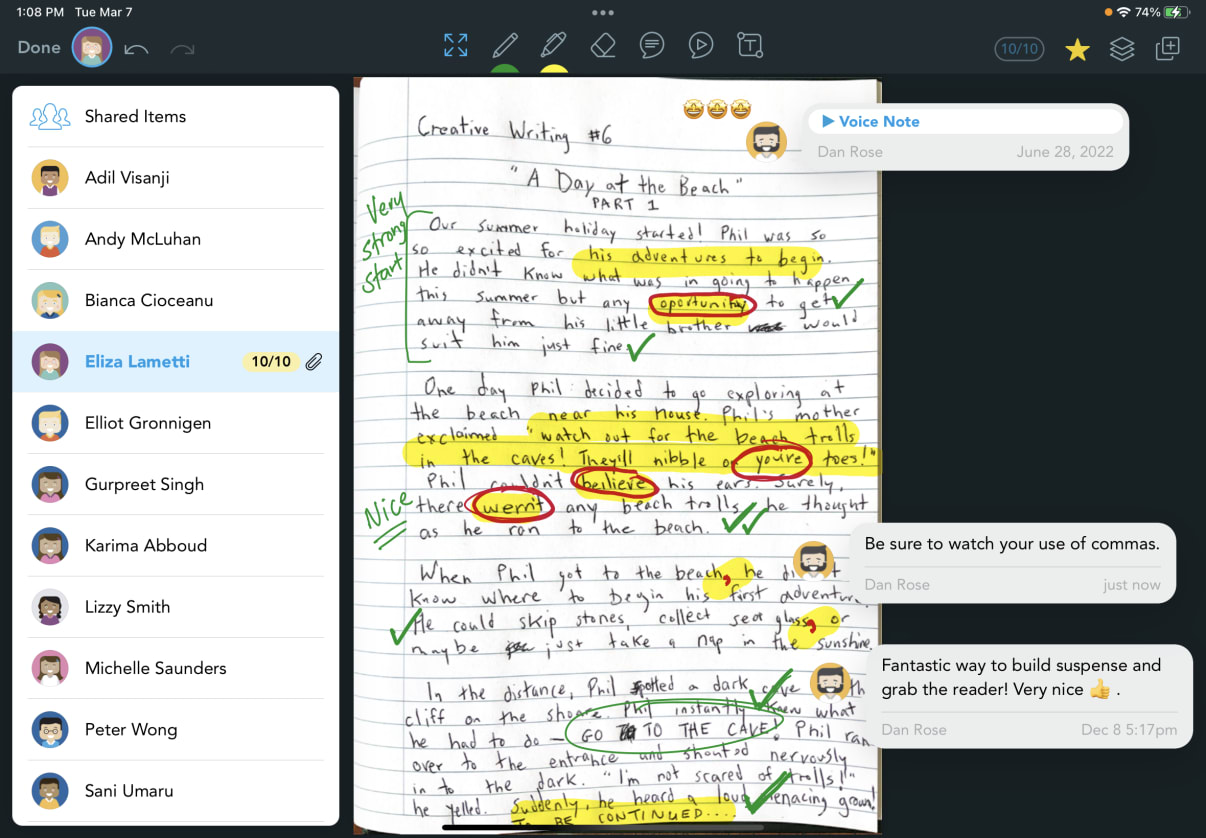 1:08 PM Tue Mar 7
74%
Done
T
10/10
Shared Items
Adil Visanji
Andy McLuhan
Bianca Cioceanu
Eliza Lametti 10/10
Elliot Gronnigen
Gurpreet Singh
Karima Abboud
Lizzy Smith
Michelle Saunders
Peter Wong
Sani Umaru
Creative Writing #6
"A Day at the Beach"
PART 1
Very
strong
start
Our summer holiday started! Phil was so
so excited for his adventures to begin.
He didn't know what was in going to happen
this summer but any oportunity to get
away from his little brother would
suit him just fine.
One day Phil decided to go exploring at
the beach near his house. Phil's mother
exclaimed "watch out for the beach trolls
in the caves! They'll nibble on you're toes!"
Phil couldn't beilieve his ears. Surely,
Nice
there wern't any beach trolls, he thought
as he ran to the beach.
When Phil got to the beach, he
know where to begin his first adventure.
He could skip stones, collect sea glass, or
maybe just take a nap in the sunshine.
In the distance, Phil spotted a dark cave
cliff on the shoare. Phil instantly knew what
he had to do – GO TO THE CAVE! Phil ran
over to the entrance and shouted nervously
in to the dark. "I'm not scared of trolls!"
he yelled. Suddenly, he heard a loud menacing growl!
TO BE CONTINUED....
Voice Note
Dan Rose June 28, 2022
Be sure to watch your use of commas.
Dan Rose just now
Fantastic way to build suspense and
grab the reader! Very nice 👍 .
Dan Rose Dec 8 5:17pm